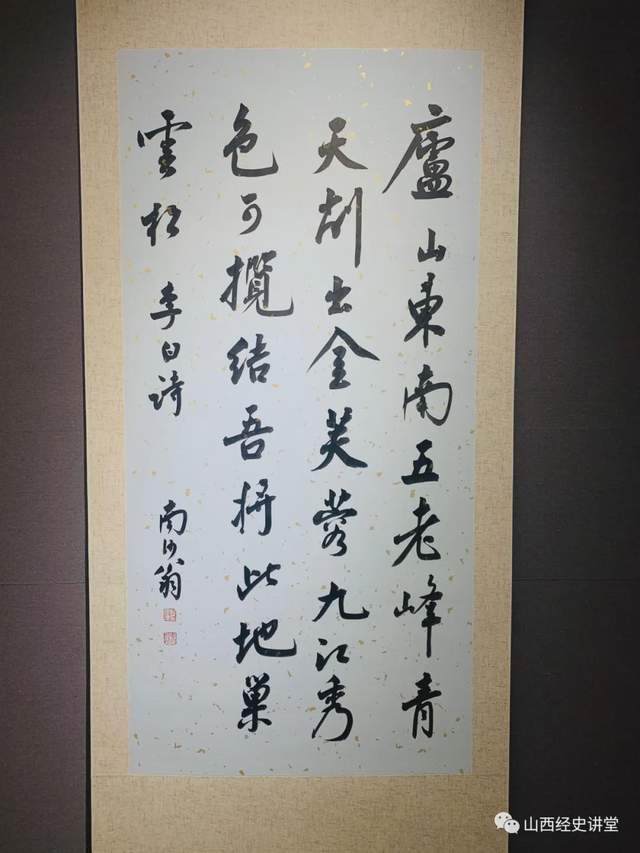 廬山東南五老峰青
天削出金芙蓉九江秀
色可攬結吾將此地巢
雲松 李白詩
南沙翁
山西经史讲堂